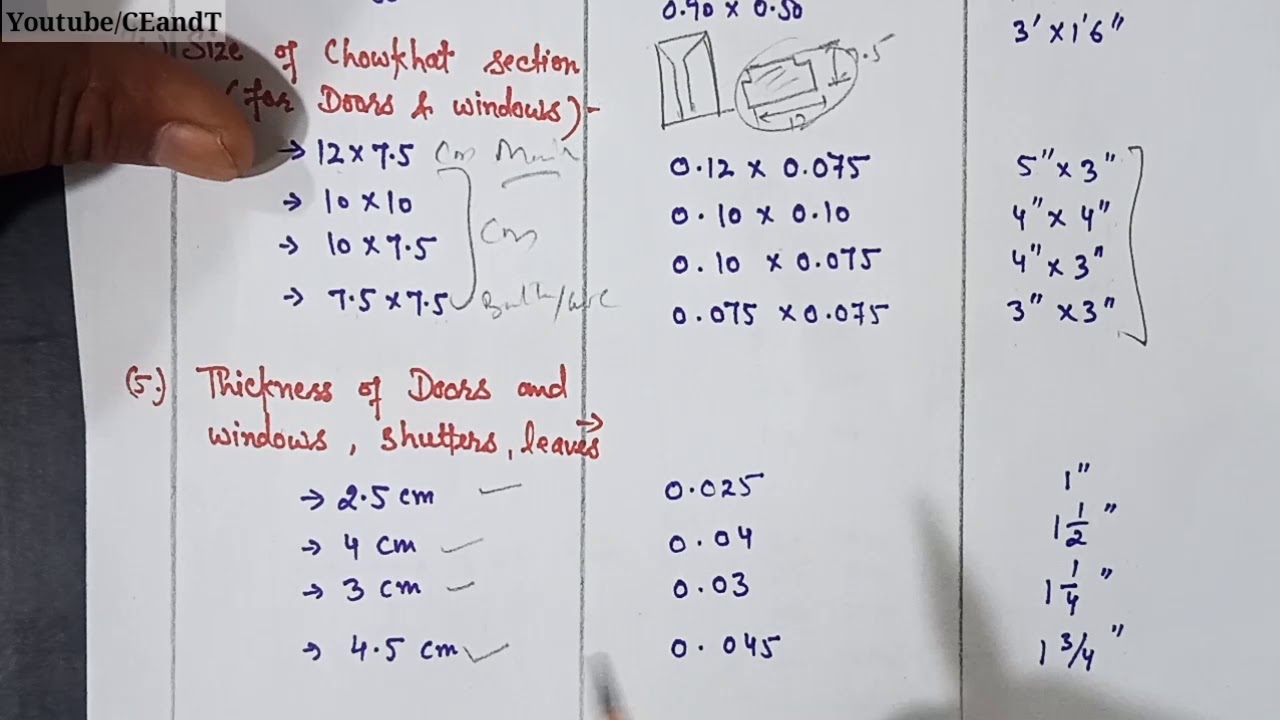 Youtube/CEandT
0.90 x 0.50 3' x 1'6"
Size of Chowkhat section
(for Doors & windows)-
7.5
12
→ 12 x 7.5 Cm 0.12 x 0.075 5" x 3"
→ 10 x 10 0.10 x 0.10 4" x 4"
→ 10 x 7.5 Cm 0.10 x 0.075 4" x 3"
→ 7.5 x 7.5 0.075 x 0.075 3" x 3"
(5.) Thickness of Doors and
windows, shutters, leaves →
→ 2.5 cm 0.025 1"
→ 4 cm 0.04 1 1/2"
→ 3 cm 0.03 1 1/4"
→ 4.5 cm 0.045 1 3/4"